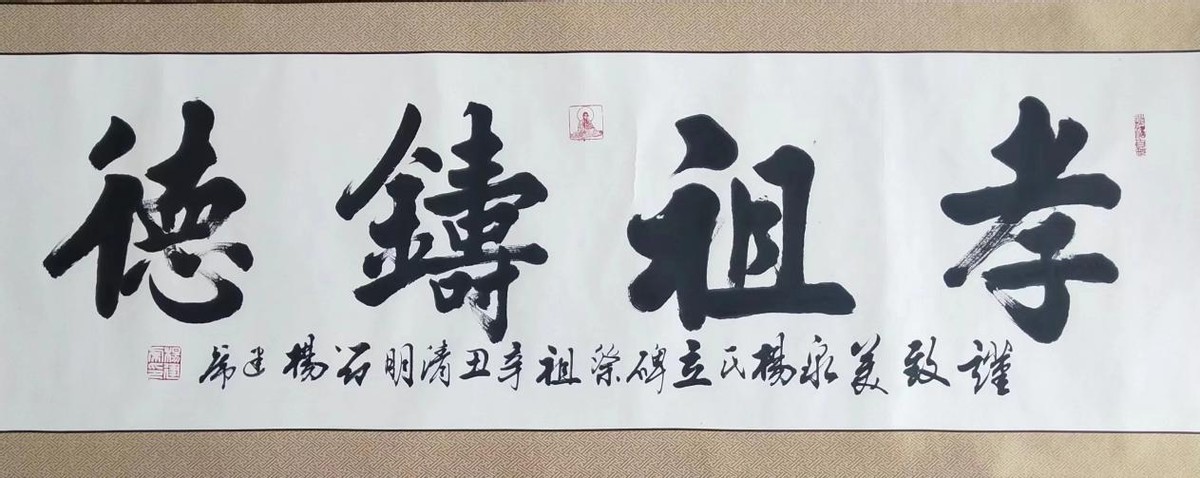 孝祖鑄德
謹致美泉楊氏立碑祭祖辛丑清明節楊建希